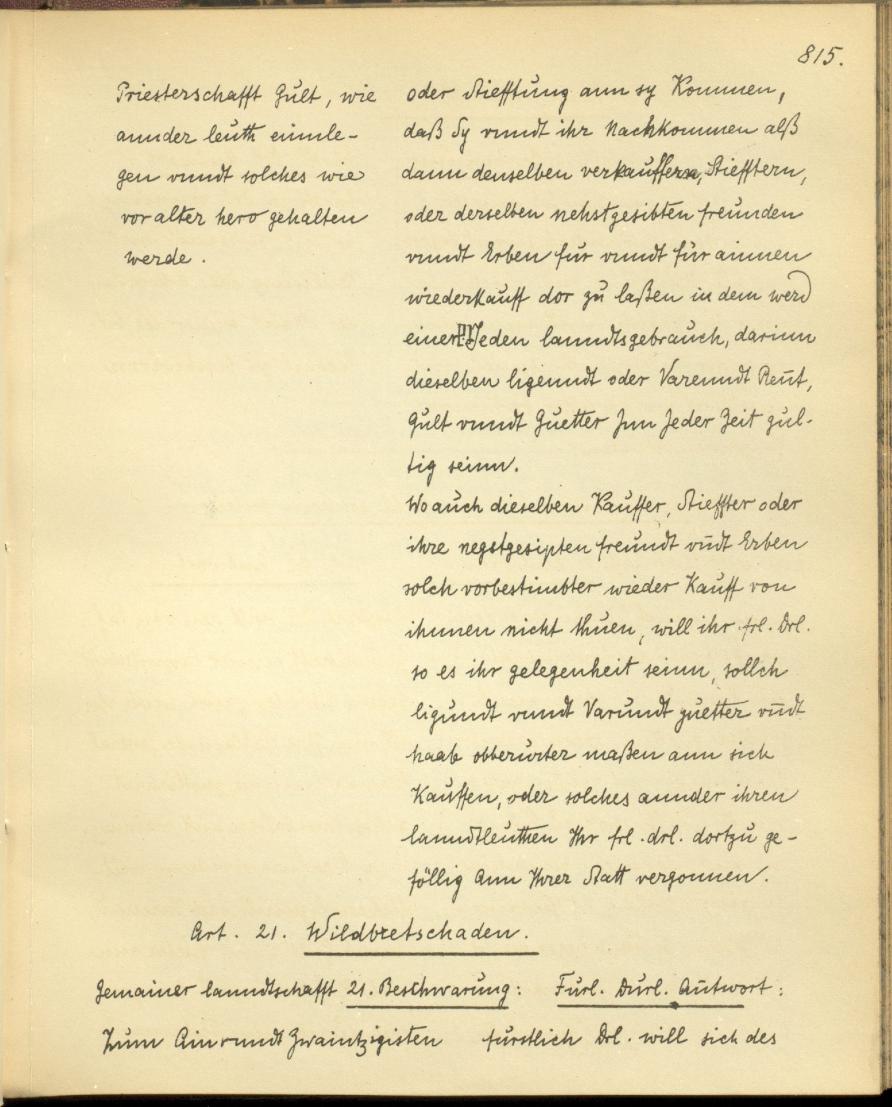 815.
Priesterschafft Gult, wie
annder leuth einnle-
gen vnndt solches wie
vor alter hero gehalten
werde.
oder Stiefftung ann sy Kommen,
daß Sy vnndt ihr Nachkommen alß
dann denselben verkauffern, Stiefftern,
oder derselben nehstgesibten freunden
vnndt Erben für vnndt für ainnen
wiederkauff dor zu laßen in dem werd
einer Jeden lanndtsgebrauch, darinn
dieselben ligenndt oder Varenndt Rent,
Gult vnndt Guetter Jnn Jeder Zeit gul-
tig seinn.
Wo auch dieselben Kauffer, Stieffter oder
ihre negstgesipten freundt vn̄dt Erben
solch vorbestimbter wieder Kauff von
ihnnen nicht thuen, will ihr frl. Drl.
so es ihr gelegenheit seinn, sollch
ligundt vnndt Varundt guetter vn̄dt
haab obberurter maßen ann sich
Kauffen, oder solches annder ihren
lanndtleuthen Ihr frl. drl. dortzu ge-
föllig Ann Ihrer Statt vergonnen.
Art. 21. Wildbretschaden.
Gemainer lanndtschafft 21. Beschwarung:
Zum Ain vnndt Zwaintzigisten
Fürl. Durl. Antwort:
fürstlich Drl. will sich des